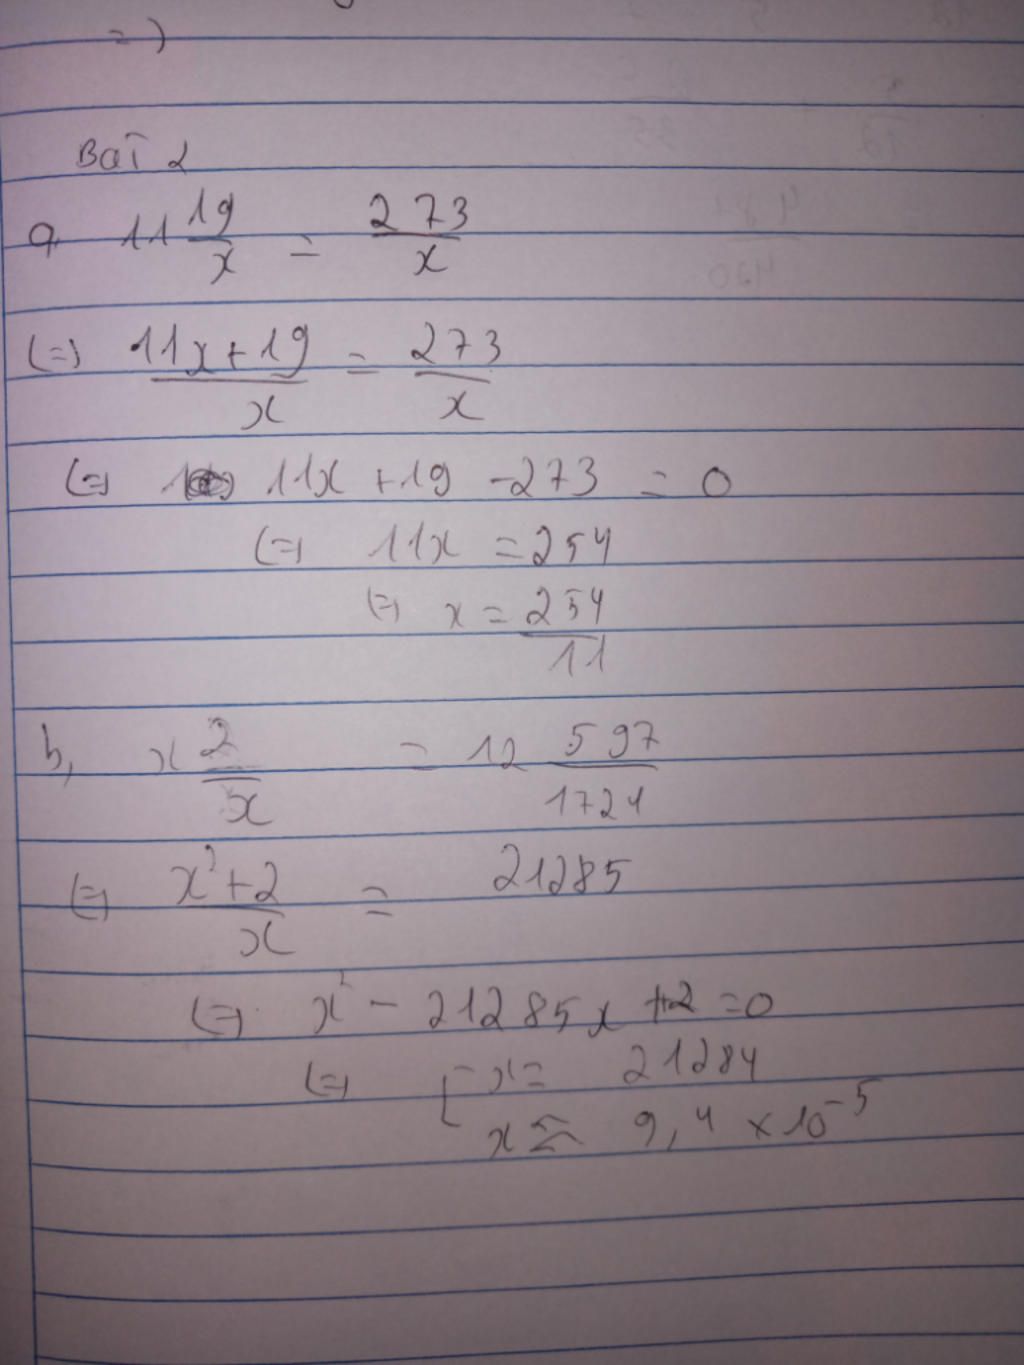 =)
Bài 2
a, 11 19/x = 273/x
(=) 11x+19/x = 273/x
(=) 11x +19 -273 = 0
(=) 11x = 254
(=) x = 254/11
b, x 2/x = 12 597/1724
(=) x²+2/x = 21285
(=) x² - 21285x +2 =0
(=) [ x = 21284
x ≈ 9,4 × 10⁻⁵